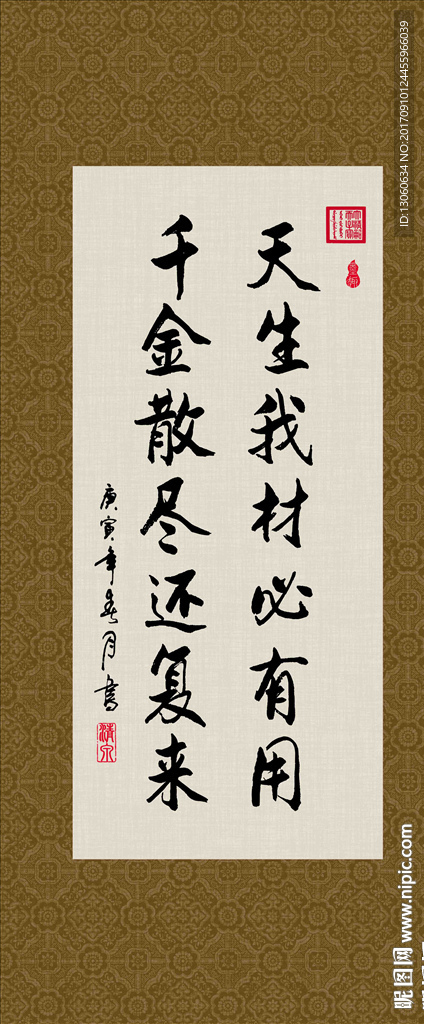 天生我材必有用
千金散尽还复来
庚寅年春月書
清泉
ID:13060634 NO:20170910124455966039
昵图网 www.nipic.com